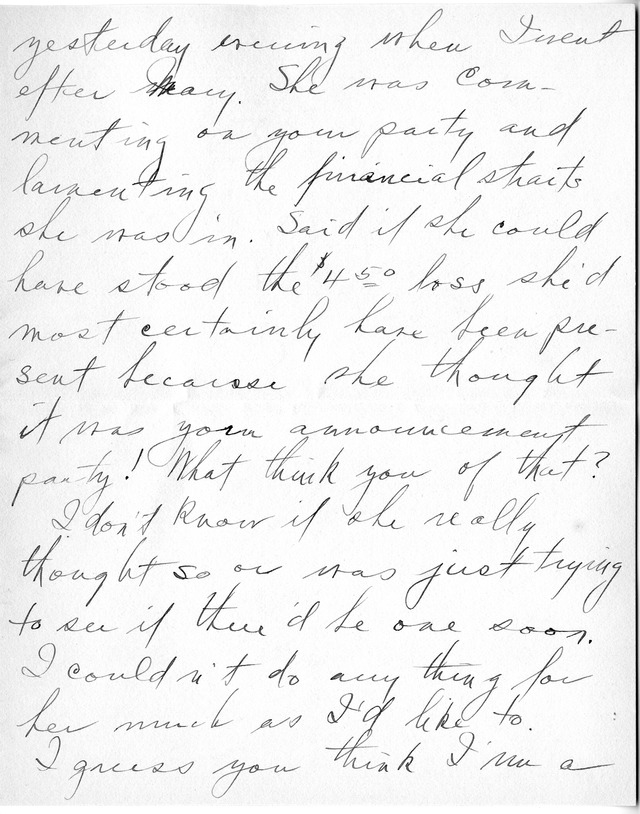 yesterday evening when I went
after Mary. She was com-
menting on your party and
lamenting the financial straits
she was in. Said if she could
have stood the $4.50 loss she'd
most certainly have been pre-
sent because she thought
it was your announcement
party! What think you of that?
I don't know if she really
thought so or was just trying
to see if there'd be one soon.
I couldn't do any thing for
her much as I'd like to.
I guess you think I'm a